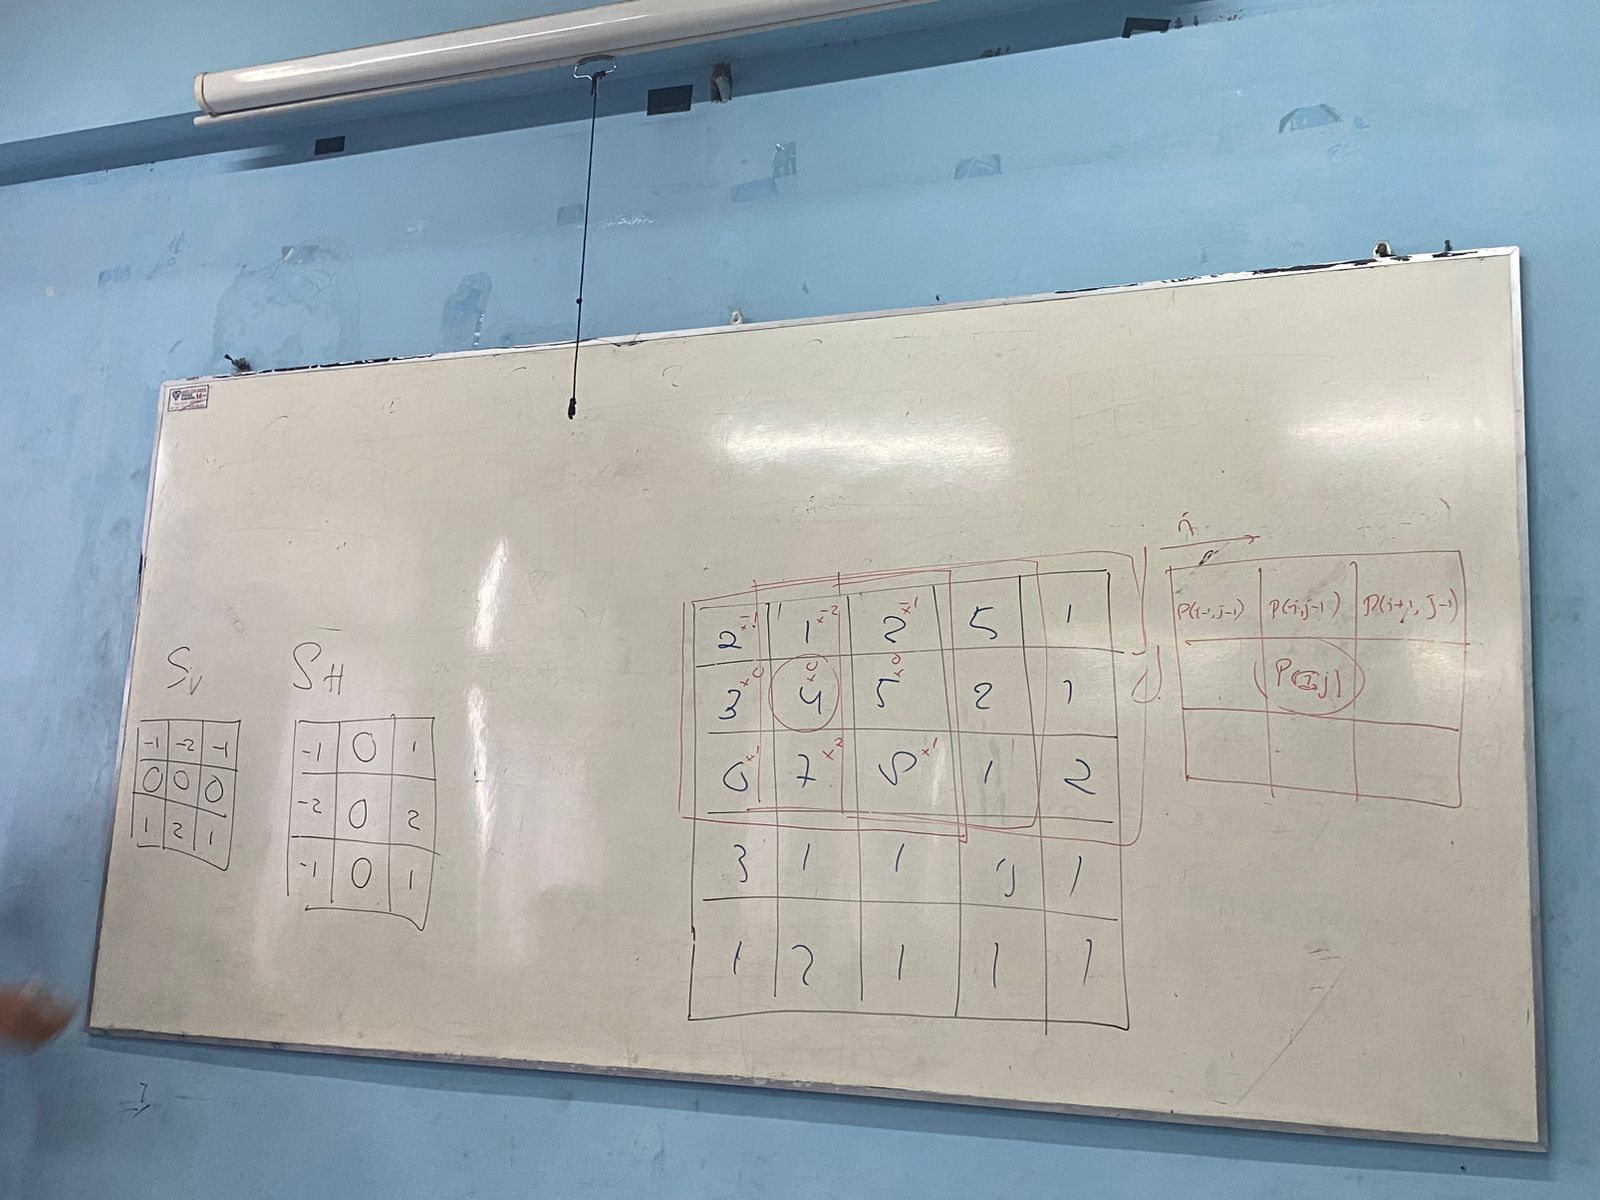 Sv
-1 -2 -1
0 0 0
1 2 1
SH
-1 0 1
-2 0 2
-1 0 1
2 x-1 1 x-2 2 x-1 5 1
3 x0 4 x0 5 x0 2 1
x1 7 x2 x1 1 2
3 1 1 1
1 2 1 1 1
i
j
P(i-1,j-1) P(i,j-1) P(i+1, j-1)
P(I,j)